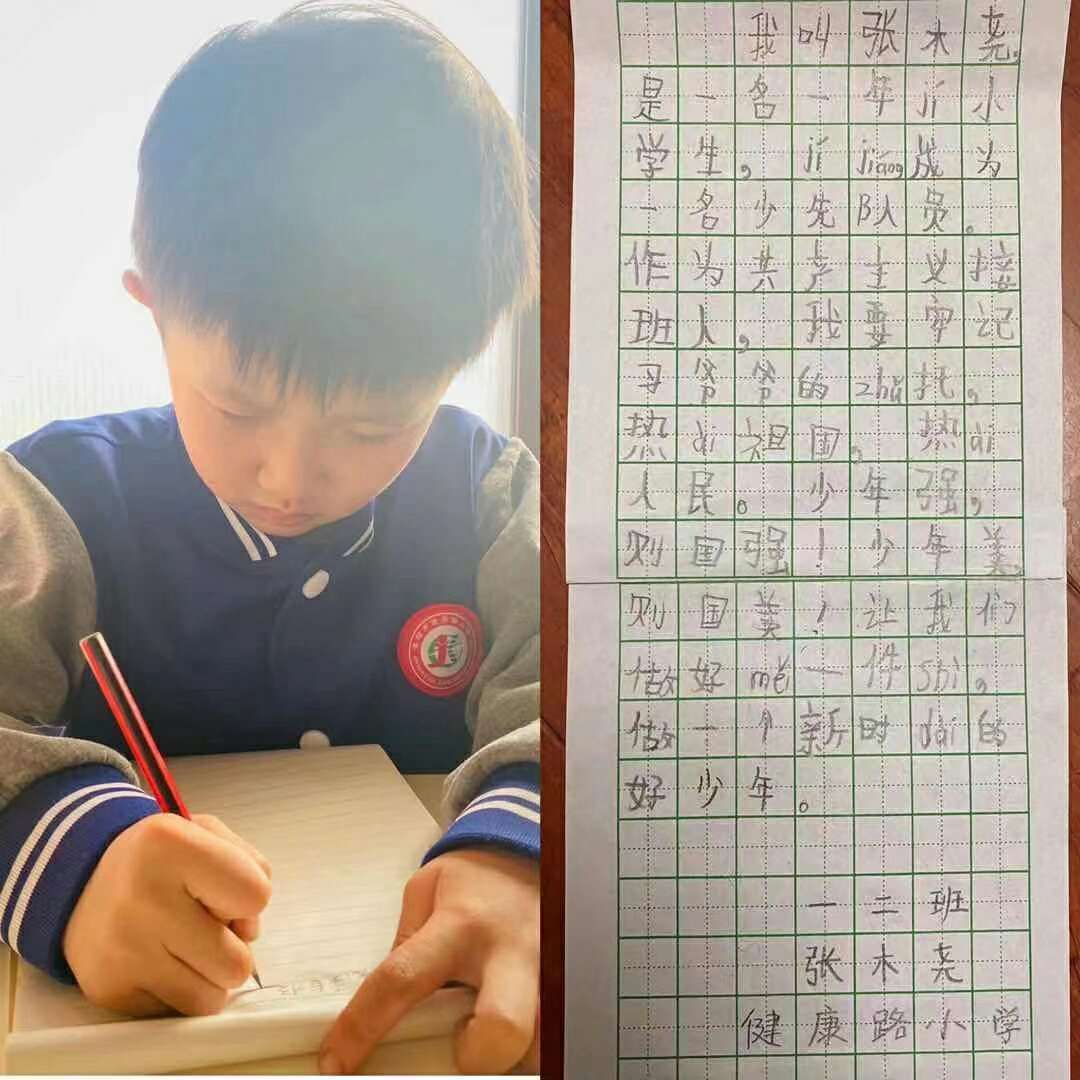 我叫张木尧。
是一名一年jí小
学生，jí jiāng成为
一名少先队员。
作为共产主义接
班人，我要牢记
习爷爷的zhǔ托，
热ài祖国，热ài
人民。少年强，
则国强！少年美，
则国美！让我们
做好měi一件shì，
做一个新时dài的
好少年。
一二班
张木尧
健康路小学